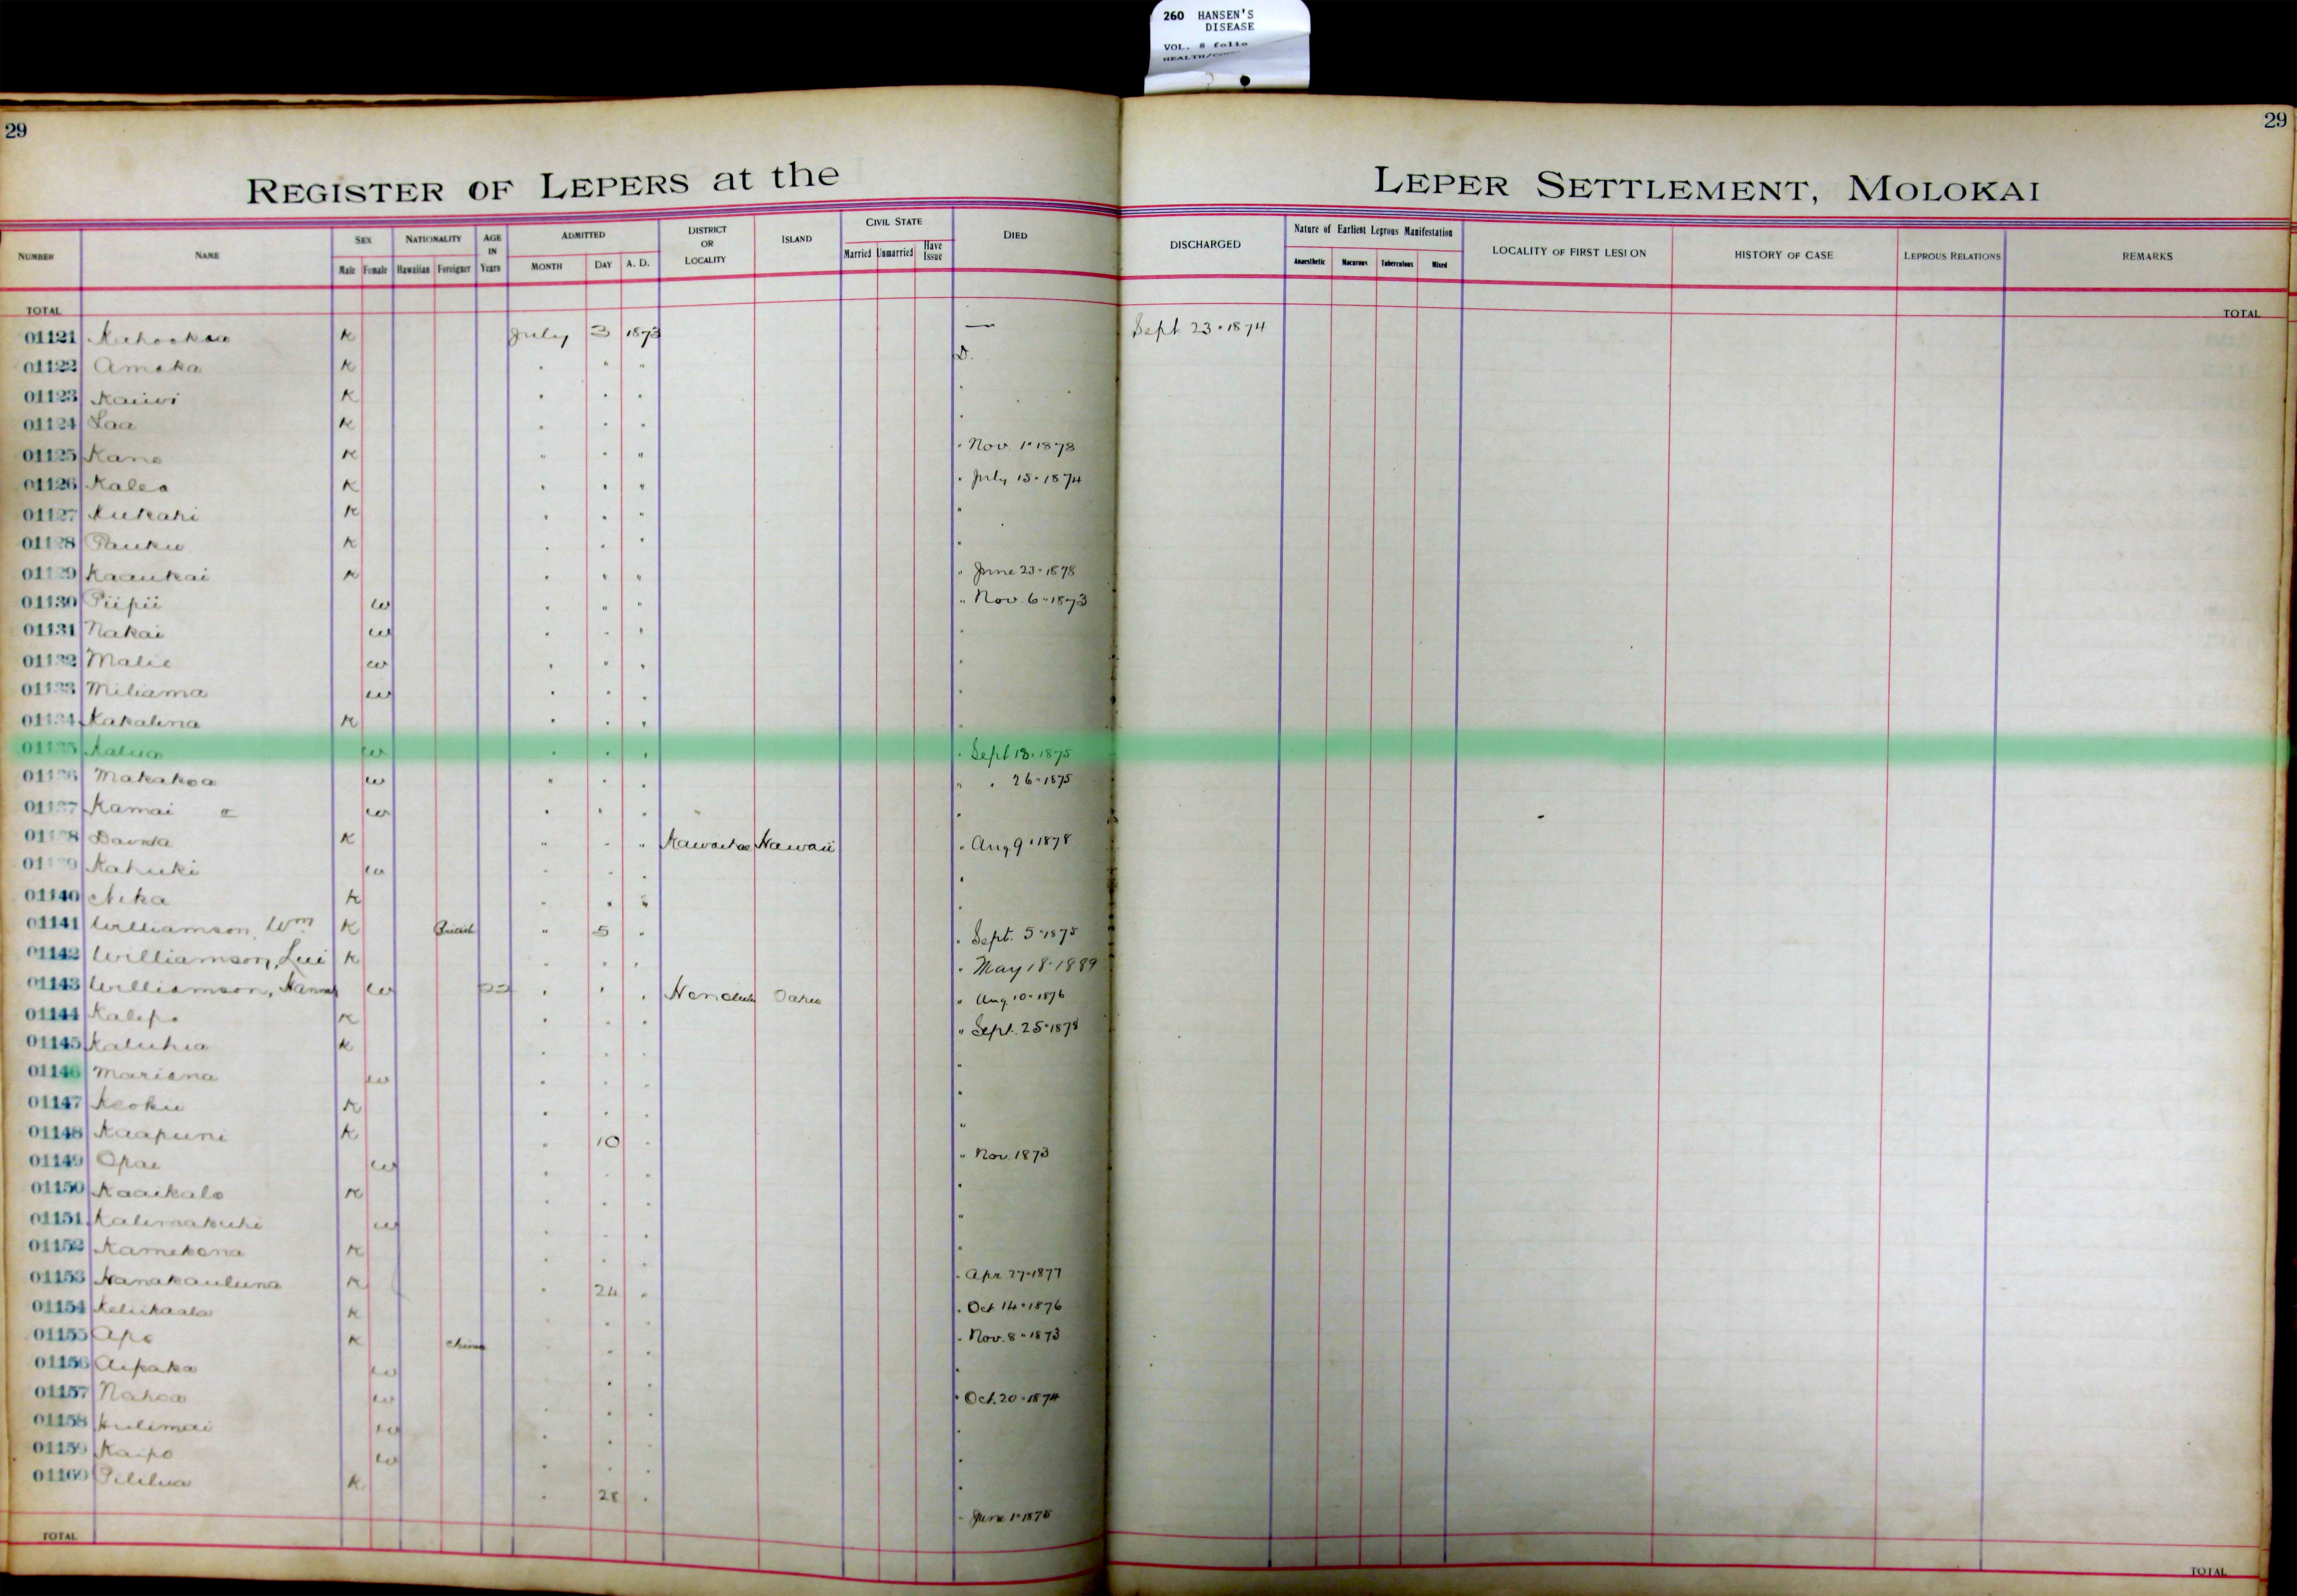 260 HANSEN'S
DISEASE
VOL. 8 folio
29
29
REGISTER OF LEPERS at the LEPER SETTLEMENT, MOLOKAI
NUMBER NAME SEX NATIONALITY AGE IN Years ADMITTED DISTRICT OR LOCALITY ISLAND CIVIL STATE DIED DISCHARGED Nature of Earliest Leprous Manifestation LOCALITY OF FIRST LESION HISTORY OF CASE LEPROUS RELATIONS REMARKS
Male Female Hawaiian Foreigner MONTH DAY A. D. Married Unmarried Have Issue Anaesthetic Macurous Tuberculous Mixed
TOTAL TOTAL
01121 K July 3 1873 — Sept 23 · 1874
01122 Amaka K " " " D.
01123 Kaiwi K " " " "
01124 Laa K " " " "
01125 Kane K " " " " Nov. 1 · 1878
01126 Kalea K " " " " July 15 · 1874
01127 Kukahi K " " " "
01128 Pauku K " " " "
01129 Kaaukai K " " " " June 23 · 1878
01130 Piipii w " " " " Nov. 6 · 1873
01131 Nakai w " " " "
01132 Malie w " " " "
01133 Miliama w " " " "
01134 Kakalina K " " " "
01135 Kalua w " " " " Sept 13 · 1875
01136 Makakoa w " " " " " 26 · 1875
01137 Kamai w " " " "
01138 K " " " Kawaihae Hawaii " Aug 9 · 1878
01139 Kahuki w " " " "
01140 Nika K " " " "
01141 Williamson, Wm K British " 5 " " Sept. 5 · 1875
01142 Williamson, Lui K " " " " May 18 · 1889
01143 Williamson, Hannah w " " " Honolulu Oahu " Aug. 10 · 1876
01144 Kalepo K " " " " Sept. 25 · 1878
01145 Kaluhia K " " " "
01146 Mariana w " " " "
01147 Keoku K " " " "
01148 Kaapuni K " 10 " "
01149 Opae w " " " " Nov. 1873
01150 Kaaikalo K " " " "
01151 Kalimakuhi w " " " "
01152 Kamekona K " " " "
01153 Nanakauluna K " 24 " " Apr 27 · 1877
01154 Keliikaala K " " " " Oct 14 · 1876
01155 Apo K China " " " " Nov. 8 · 1873
01156 Aipaka w " " " "
01157 Nahoa w " " " " Oct. 20 · 1874
01158 Kulimai w " " " "
01159 Kaipo w " " " "
01160 Pililua K " 28 " " June 1 · 1875
TOTAL TOTAL